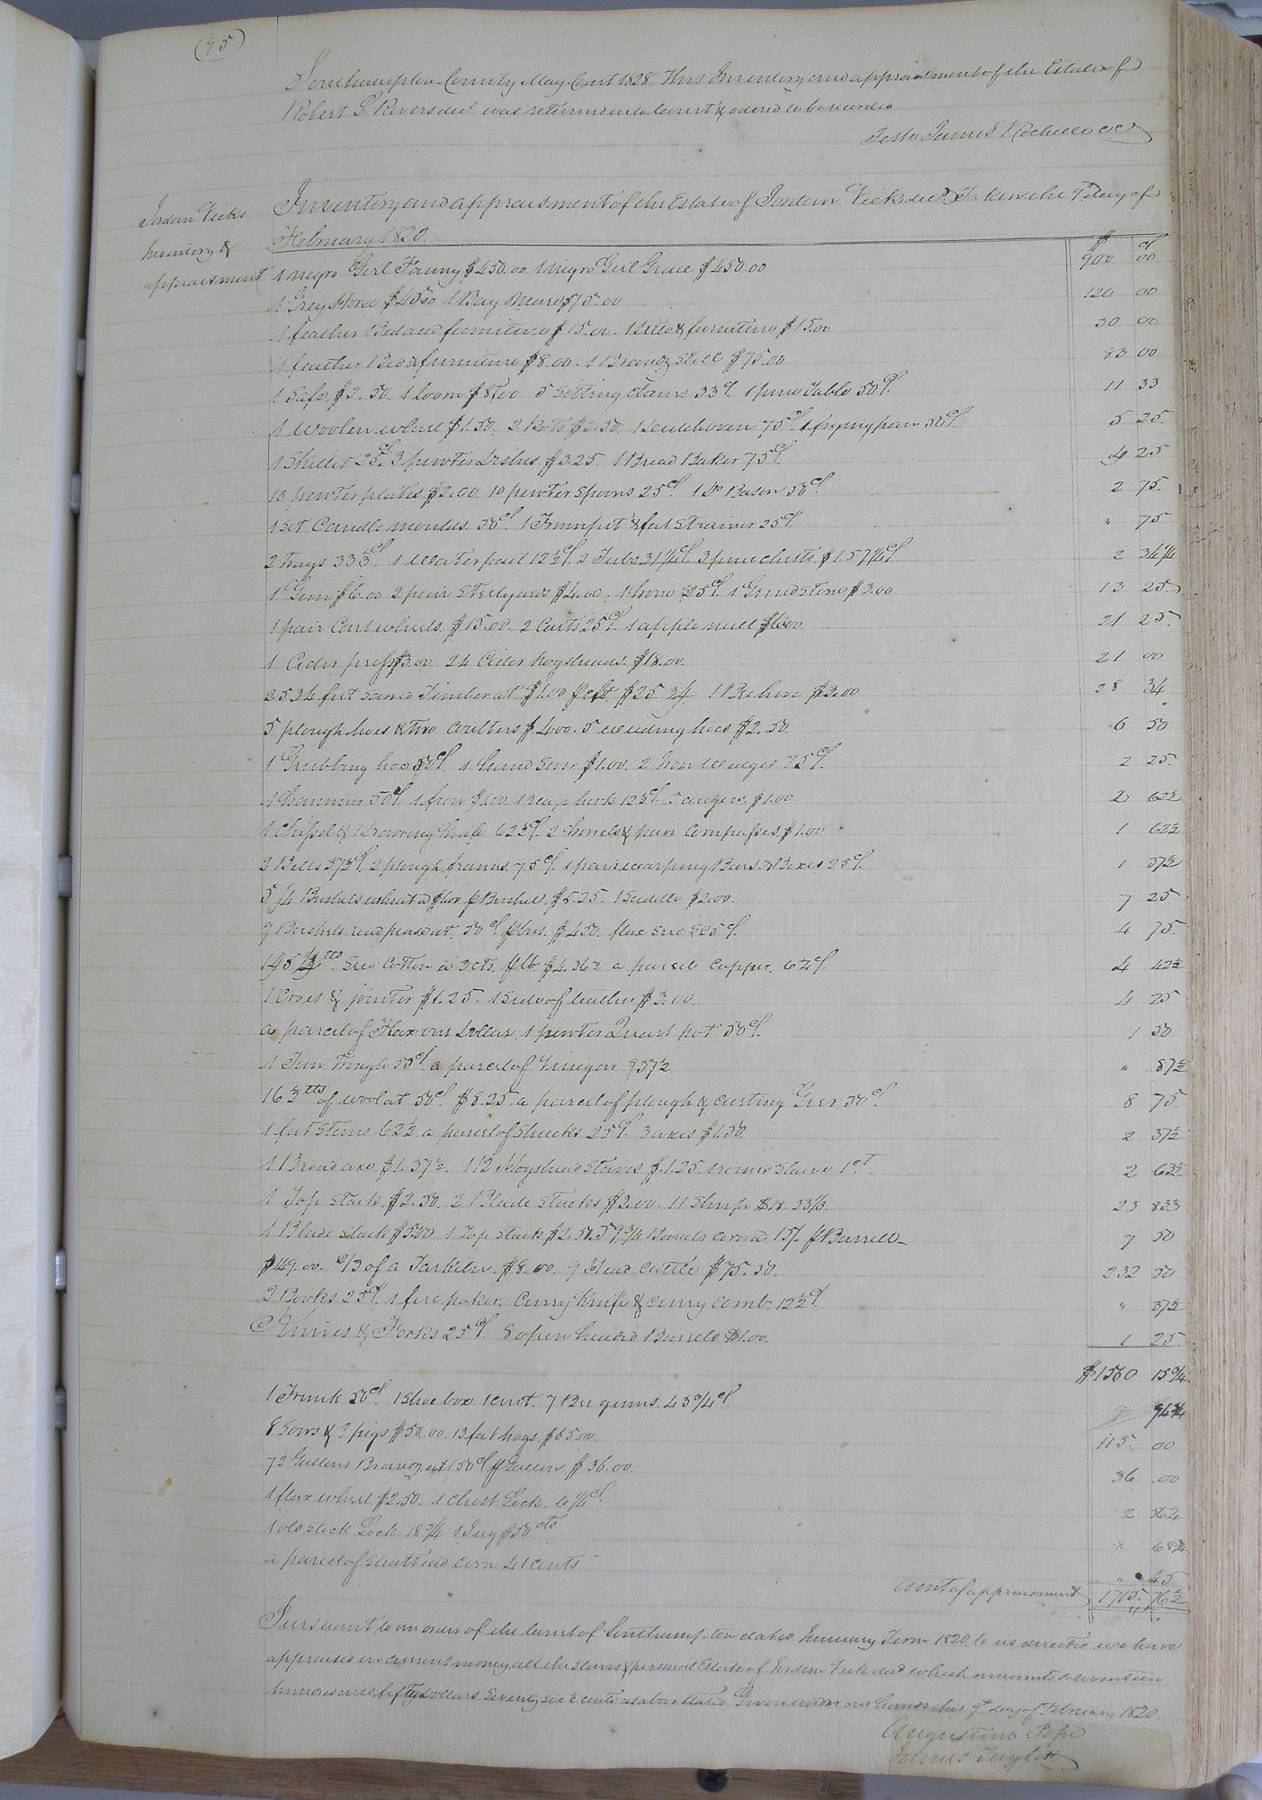 (95)
Southampton County May Court 1828. This Inventory and appraisment of the Estate of
Robert G Rivers decd was returned into Court & ordered to be recorded
Teste James Rochelle CC
Jordan Vicks
Inventory &
appraisment
Inventory and appraisment of the Estate of Jordan Vick decd Taken the day of
February 1820.
$ cts
1 negro Girl Fanny $450.00 1 negro Girl Grace $450.00 900 00
1 Grey Horse $45.00 1 Bay Mare $75.00 120 00
1 feather Bed and furniture $15.00. 1 ditto & furniture $15.00 30 00
1 feather Bed & furniture $8.00. 1 Brandy Still $75.00 83 00
1 Safe $2.50. 1 loom $8.00 5 Sitting chairs 33 cts. 1 pine Table 50 cts. 11 33
1 woolen wheel $1.50. 2 Pots $2.50. 1 dutch oven 75 cts. 1 frying pan 50 cts. 5 25
1 Skillet 25 cts 3 pewter Dishes $3.25. 1 Bread Baker 75 cts. 4 25
10 pewter plates $2.00. 10 pewter Spoons 25 cts. 1 Do Bason 50 cts. 2 75
1 set Candle moulds. 50 cts. 1 Trumpet & fat Strainer 25 cts. " 75
2 Trays 33⅓ cts. 1 Water pail 12½ cts. 2 Tubs 31¼ cts. 3 pine chests. $1.57¼ cts. 2 34¼
1 Gun $6.00 2 pair Steelyards $4.00. 25 cts. 1 Grindstone $3.00 13 25
1 pair Cart wheels. $15.00. 2 Carts 25 cts. 1 apple mill $6.00 21 25
1 Cider press $3.00 24 Cider hogsheads. $18.00. 21 00
2534 feet Sawd Timber at $1.00 $25.34 1 Beehive $3.00 28 34
5 plough hoes & two Coulters $4.00. 5 weeding hoes $2.50. 6 50
1 Grubbing hoe 50 cts. 1 hand Saw $1.00. 2 Iron wedges 75 cts. 2 25
1 hammer 50 cts 1 frow $1.00 1 reap hook 12½ cts. 3 augers. $1.00 2 62½
1 Chissel & drawing knife 62½ cts. 2 & pair Compasses $1.00 1 62½
2 Bells 37½ cts. 2 plough frames. 75 cts. 1 pair warping Bars & Boxes 25 cts. 1 37½
5¼ Bushels wheat @ $1.00 p Bushel. $5.25. 1 Saddle $2.00. 7 25
9 Bushels read peas at. 50 cts p bus. $4.50. flax seed 25 cts. 4 75
145 ½ lbs. seed Cotton @ 3 cts. p lb $4.36½ a parcel Copper. 6¼ cts. 4 42½
& jointer $1.25. 1 side of leather $3.00. 4 25
a parcel of Flax one dollar. 1 pewter Quart pot 50 cts. 1 50
1 Tan Trough 50 cts. a parcel of Vinegar $37½ " 87½
16½ lbs of wool at 50 cts. $8.25. a parcel of plough & casting Gear. 50 cts. 8 75
1 fat Stand 62½ a parcel of Shucks 25 cts. 3 axes $1.50. 2 37½
1 Broad axe $1.37½. 112 Hogshead Staves $1.25. 1 ct. 2 63½
1 Top Stack. $2.50. 2 Blade Stacks $3.00. 11 Sheep $18.33⅓. 23 83⅓
1 Blade Stack $5.00 1 Top Stack $2.50. 59¾ Barrels corn @ 15/. p Barrell 7 50
$149.00. 2/3 of a $8.00. 9 Head Cattle $75.50. 232 50
2 Books 25 cts. 1 fire poker. Curry Knife & curry comb. 12½ cts. " 37½
Knives & Forks 25 cts. 8 open headed Barrels $1.00. 1 25
$1560 15¾
1 Trunk 50 cts. 1 Shoe box 1 cent. 7 Bee gums. 43¾ cts. 94¾
8 Sows & 3 pigs $50.00. 13 fat hogs. $65.00. 115 00
72 Gallons Brandy at 50 cts p Gallon $36.00. 36 00
1 flax wheel $2.50. 1 Chest Lock. 6¼ cts. 2 56¼
1 old Stock Lock 18¾ 1 Jug $50 cts " 68¾
a parcel of corn 41 cents " 45
amt of appraisment 1715. 76½
Pursuant to an order of the Court of Southampton dated January Term 1820 to us directed we have
appraised in current money all the slaves & personal Estate of Jordan Vick decd which amounts to seventeen
hundred and fifty dollars Seventy six ½ cents as above stated. Given under our hands this 9th day of February 1820
Augustine Pope
James